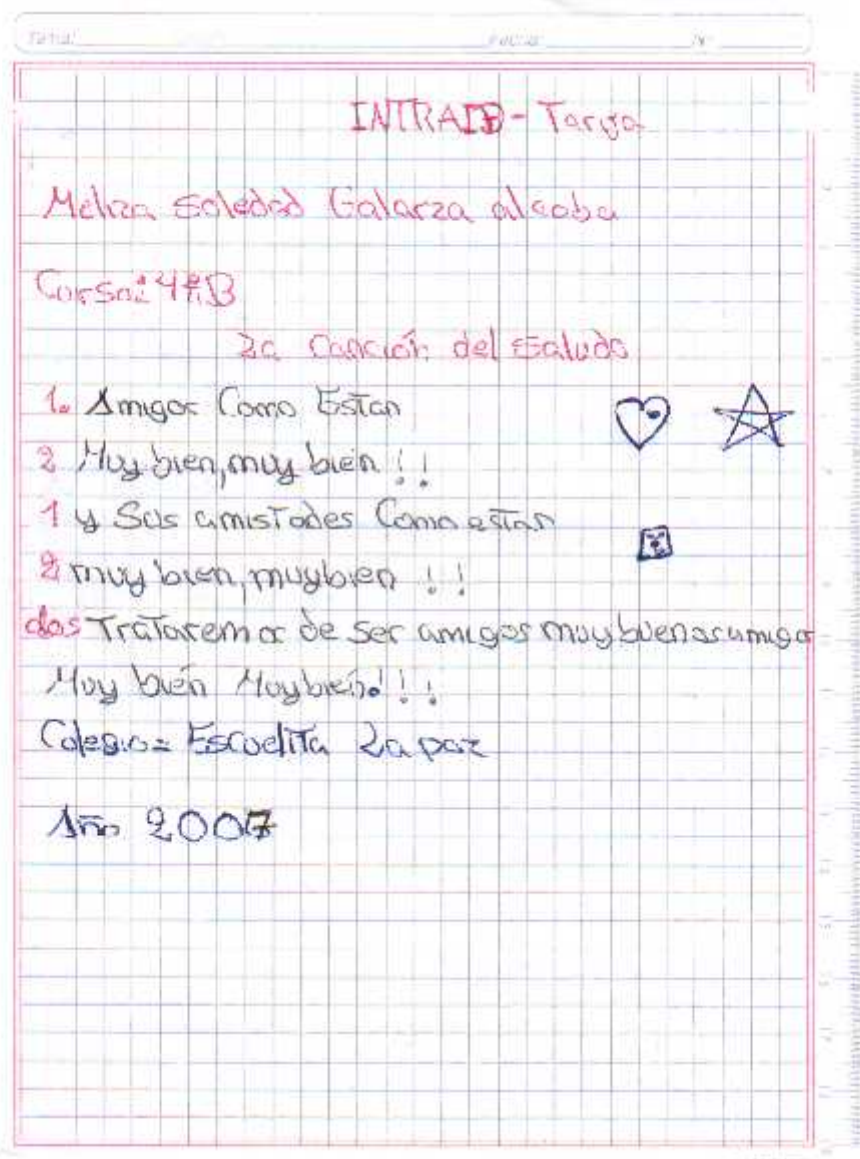 Tema: Fecha: Nº
INTRAID - Tarija
Meliza Soledad Galarza alcoba
Curso: 4º B
La Canción del Saludo
1. Amigos Como Estan
2 Muy bien, muy bien !!
1 y Sus amistades Como estan
2 muy bien, muy bien !!
dos Trataremos de ser amigos muy buenos amigos
Muy bien Muy bien !!!
Colegio= Escuelita La paz
Año 2007